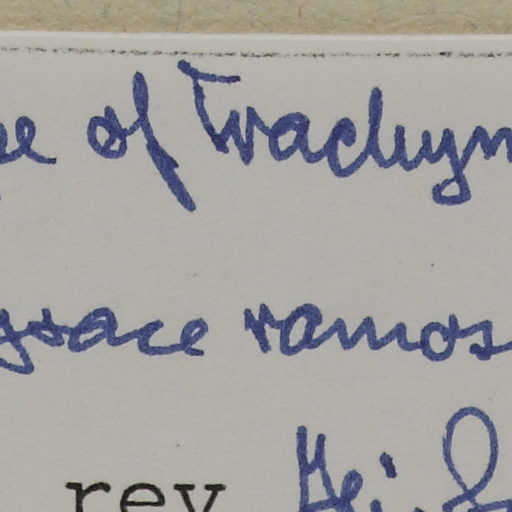 pe of Trachyn
grace ramos
rev